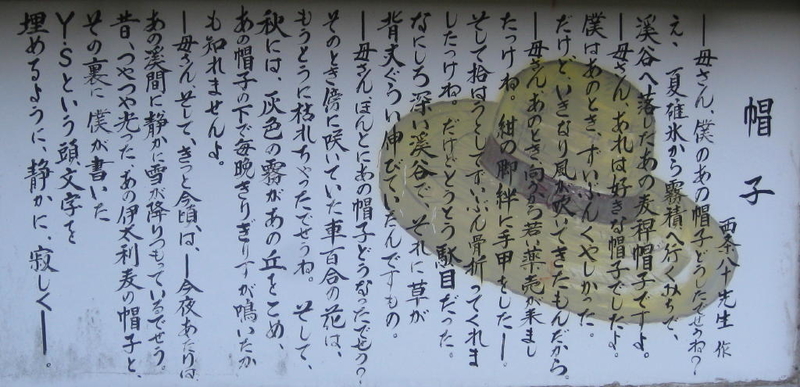 帽子
西条八十先生 作
―母さん、僕のあの帽子どうしたでせうね？
え、夏碓氷から霧積へ行くみちで、
渓谷へ落したあの麦稈帽子ですよ。
―母さん、あれは好きな帽子でしたよ。
僕はあのとき、ずいぶんくやしかった。
だけど、いきなり風が吹いてきたもんだから。
―母さん、あのとき向ふから若い薬売が来まし
たっけね。紺の脚絆に手甲をした―。
そして拾はうとしてずいぶん骨折ってくれま
したっけね。だけどとうとう駄目だった。
なにしろ深い渓谷で、それに草が
背丈ぐらい伸びていたんですもの。
―母さんほんとにあの帽子どうなったでせう？
そのとき傍に咲いていた車百合の花は、
もうとうに枯れちゃったでせうね。そして、
秋には、灰色の霧があの丘をこめ、
あの帽子の下で毎晩きりぎりすが鳴いたか
も知れませんよ。
―母さんそして、きっと今頃は、―今夜あたりは、
あの渓間に静かに雪が降りつもっているでせう。
昔、つやつや光ったあの伊太利麦の帽子と、
その裏に僕が書いた
Y・Sという頭文字を
埋めるように、静かに、寂しく―。